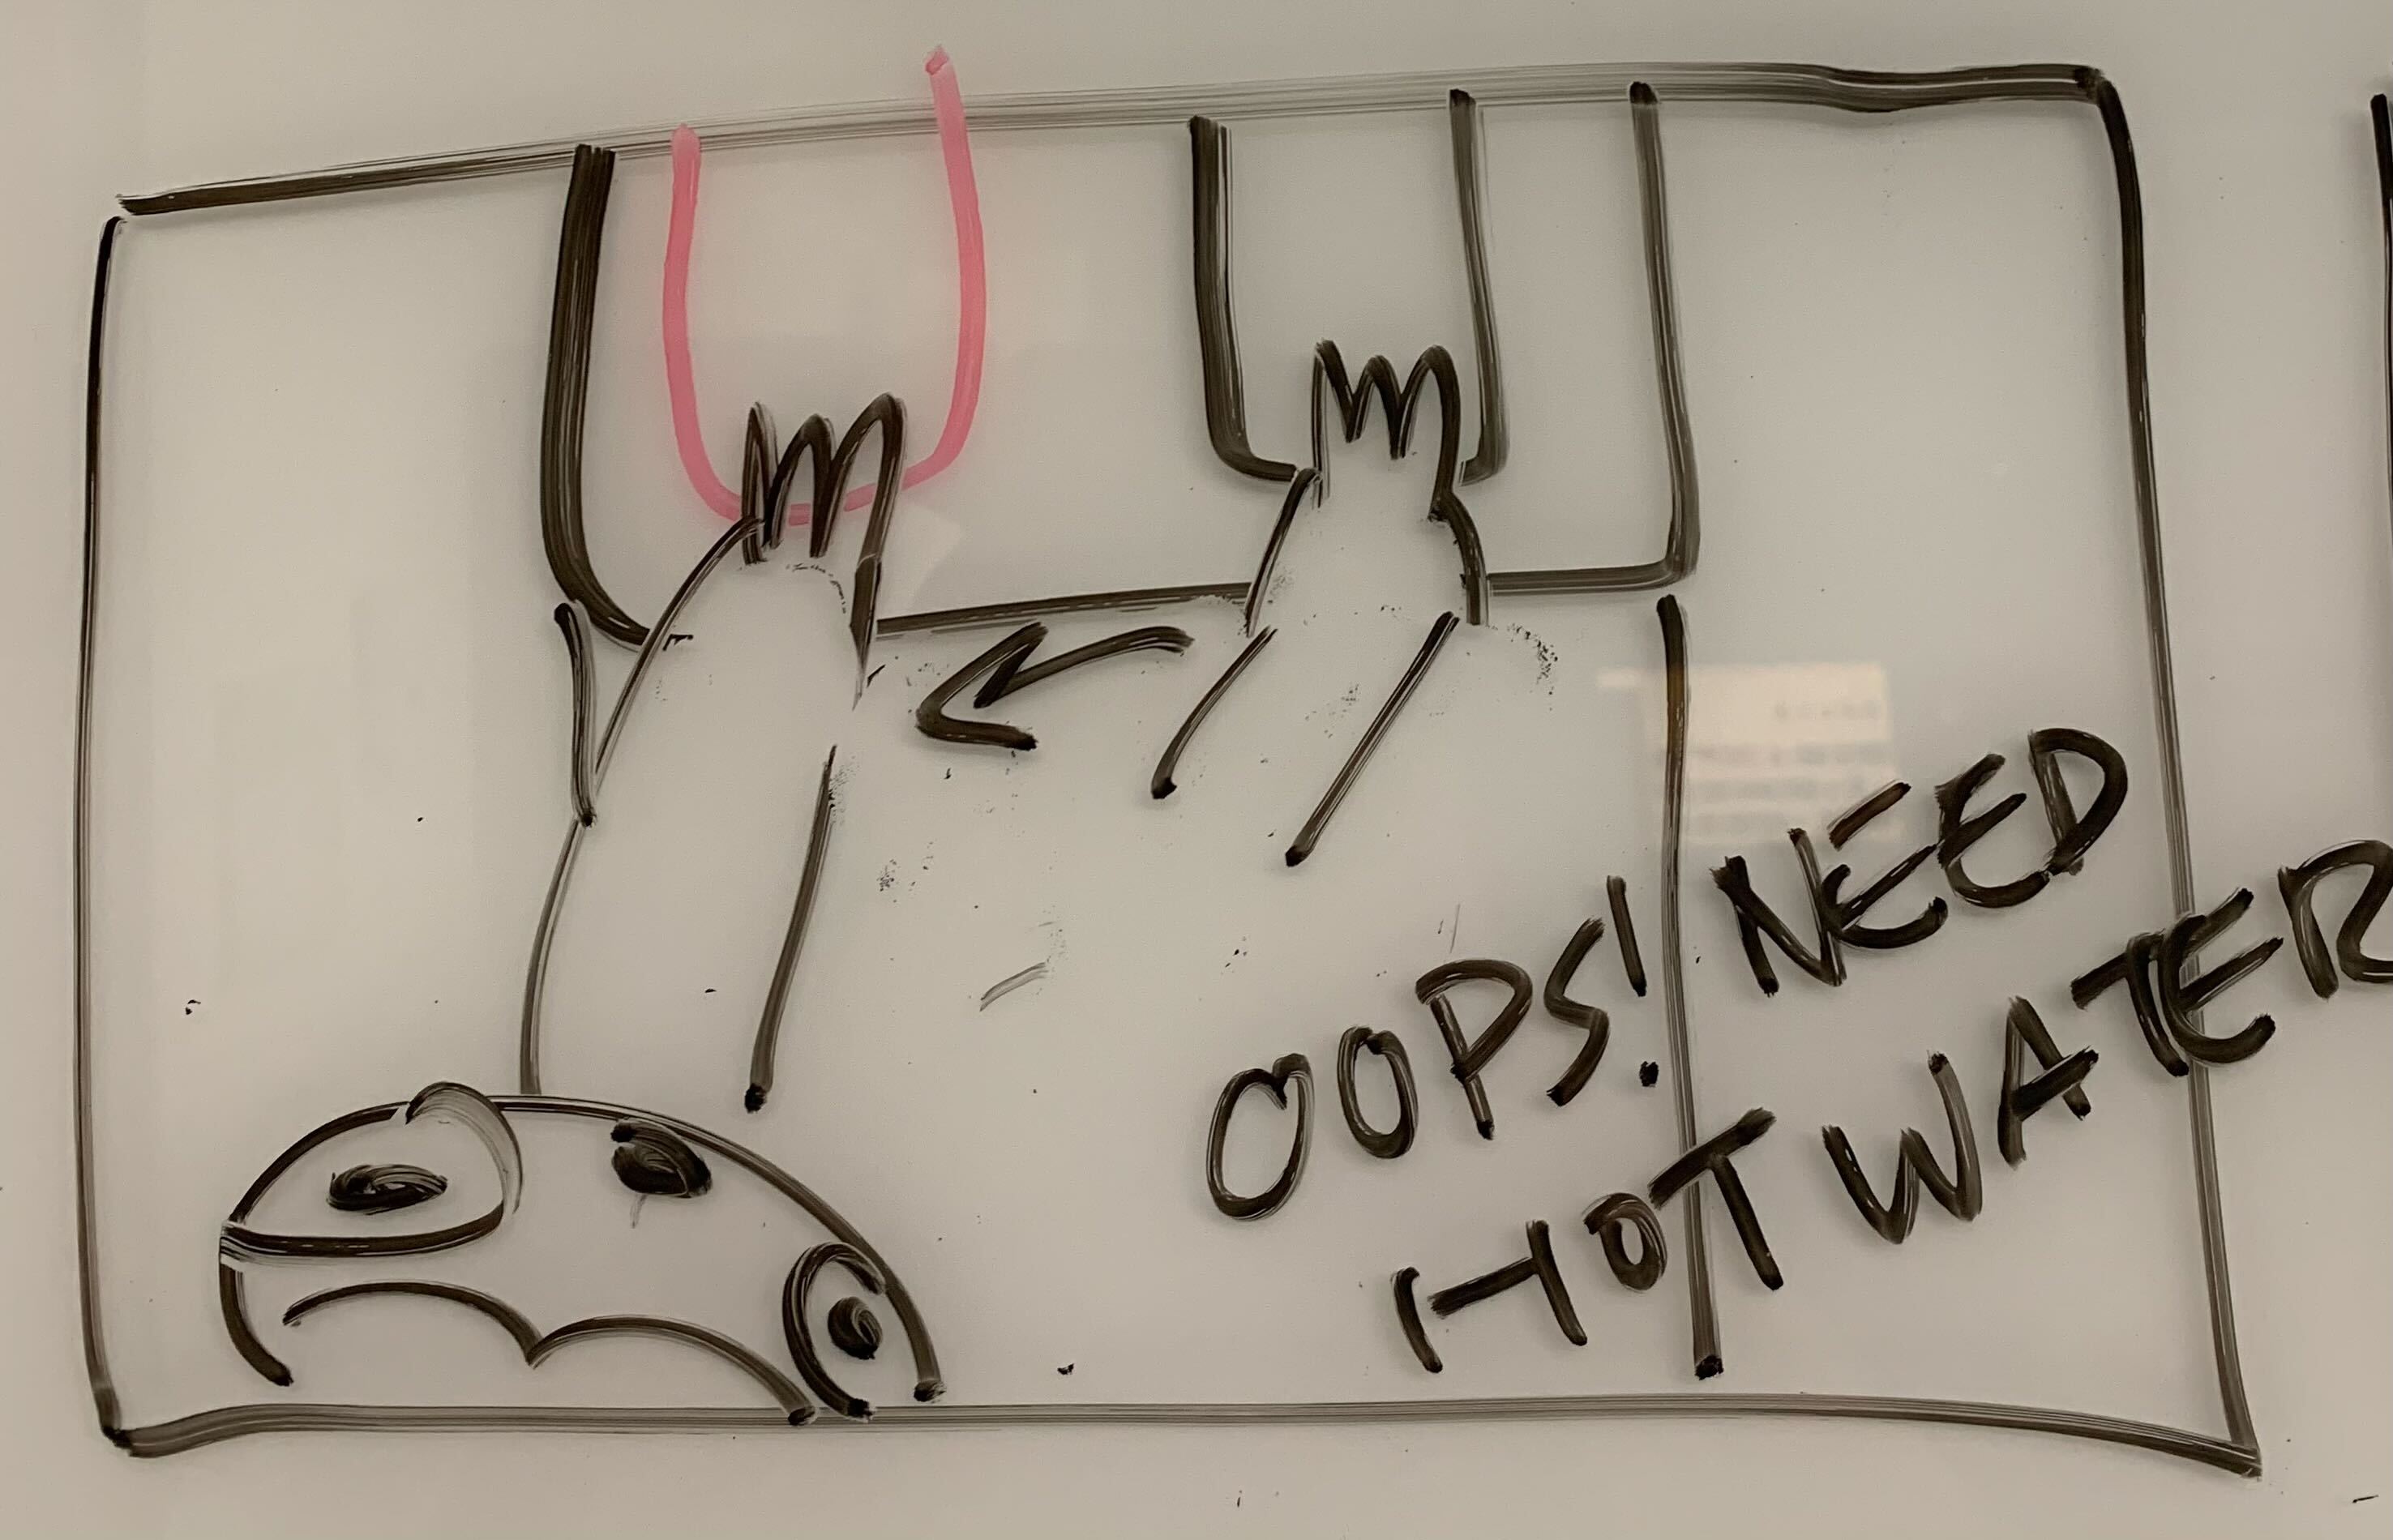 OOPS! NEED
HOT WATER